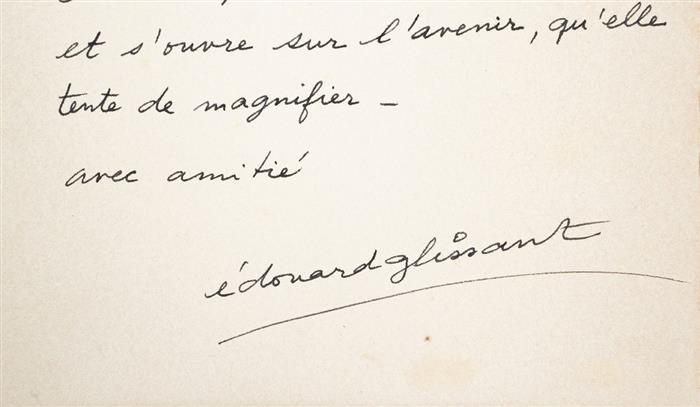 et s'ouvre sur l'avenir, qu'elle
tente de magnifier –
avec amitié
édouard glissant